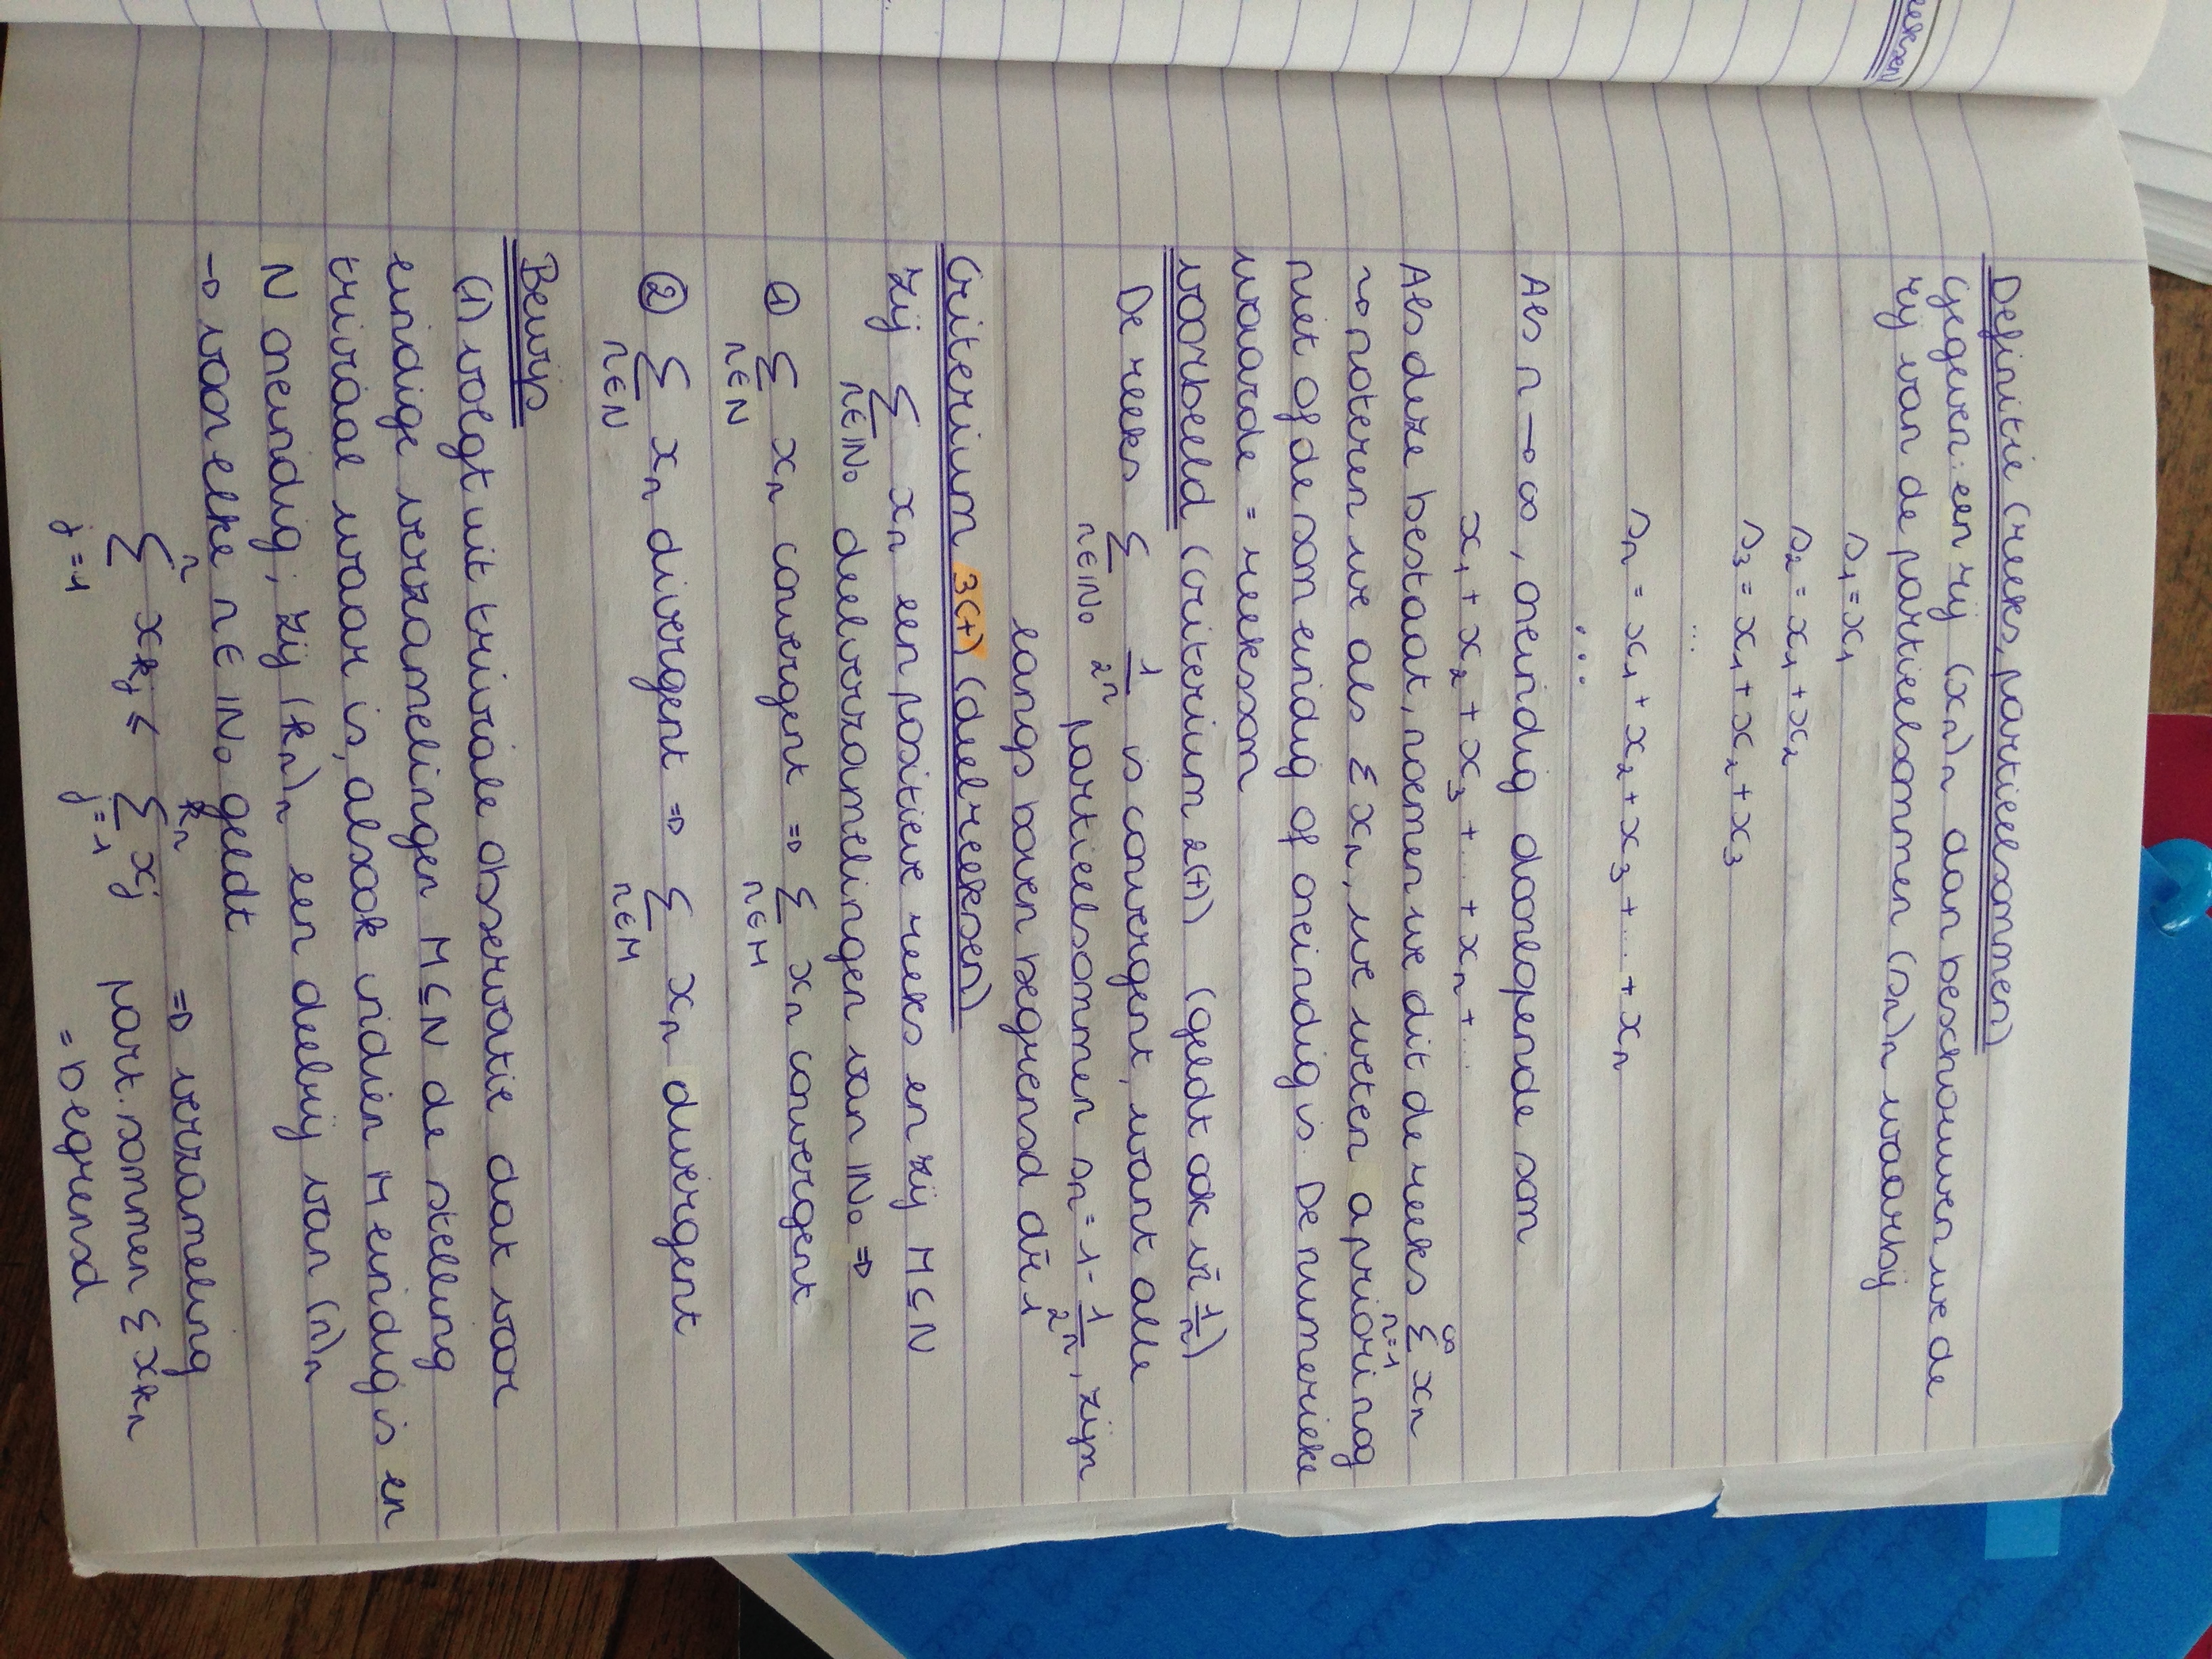 reeksen)
Definitie (reeks, partieelsommen)
Gegeven: een rij (xₙ)ₙ dan beschouwen we de
rij van de partieelsommen (sₙ)ₙ waarbij
s₁ = x₁
s₂ = x₁ + x₂
s₃ = x₁ + x₂ + x₃
...
sₙ = x₁ + x₂ + x₃ + ... + xₙ
...
Als n → ∞, oneindig doorlopende som
x₁ + x₂ + x₃ + ... + xₙ + ...
Als deze bestaat, noemen we dit de reeks ∑ₙ₌₁^∞ xₙ
→ noteren we als ∑ xₙ, we weten a priori nog
niet of de som eindig of oneindig is. De numerieke
waarde = reekssom
voorbeeld (criterium 2(+)) (geldt ook vr 1/n)
De reeks ∑_{n∈ℕ₀} 1/2ⁿ is convergent, want alle
partieelsommen sₙ = 1 - 1/2ⁿ, zijn
langs boven begrensd dr 1
Criterium 3C(+) (deelreeksen)
zij ∑_{n∈ℕ₀} xₙ een positieve reeks en zij M ⊆ N
deelverzamelingen van ℕ₀ ⇒
① ∑_{n∈N} xₙ convergent ⇒ ∑_{n∈M} xₙ convergent
② ∑_{n∈N} xₙ divergent ⇒ ∑_{n∈M} xₙ divergent
Bewijs
(1) volgt uit triviale observatie dat voor
eindige verzamelingen M ⊆ N de stelling
triviaal waar is, alsook indien M eindig is en
N oneindig; zij (kₙ)ₙ een deelrij van (n)ₙ
→ voor elke n ∈ ℕ₀ geldt
∑ⱼ₌₁ⁿ x_{kⱼ} ≤ ∑ⱼ₌₁^{kₙ} xⱼ ⇒ verzameling
part. sommen ∑ x_{kₙ}
= begrensd